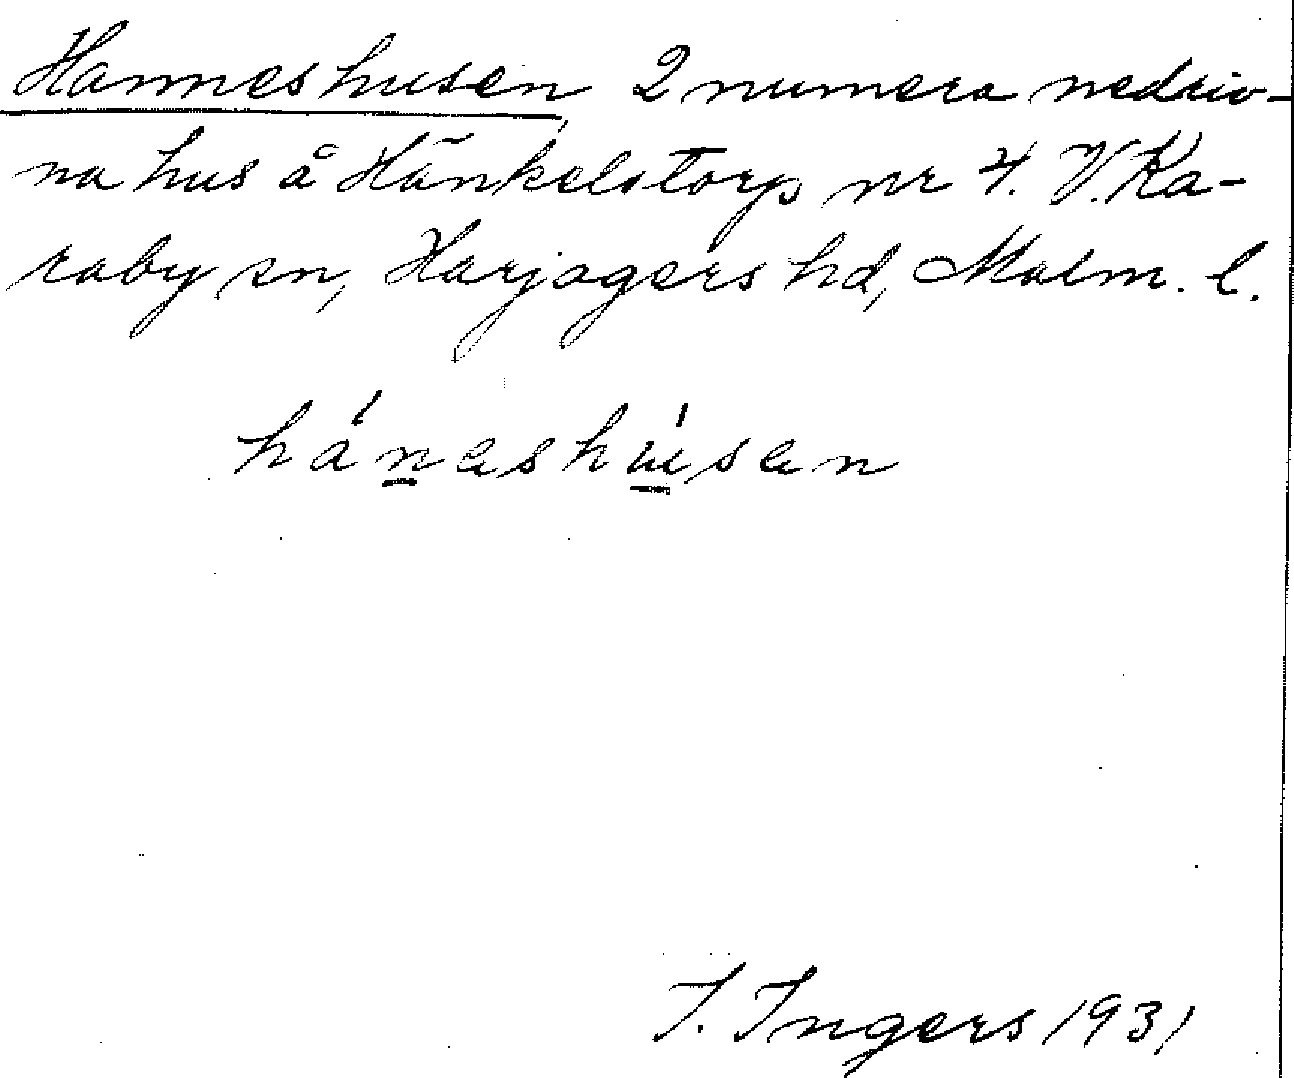 Hanneshusen 2 numera nedriv-
na hus å Hänkelstorp nr 4. V. Ka-
raby sn, Harjagers hd, Malm. l.
háneshúsen
I. Ingers 1931